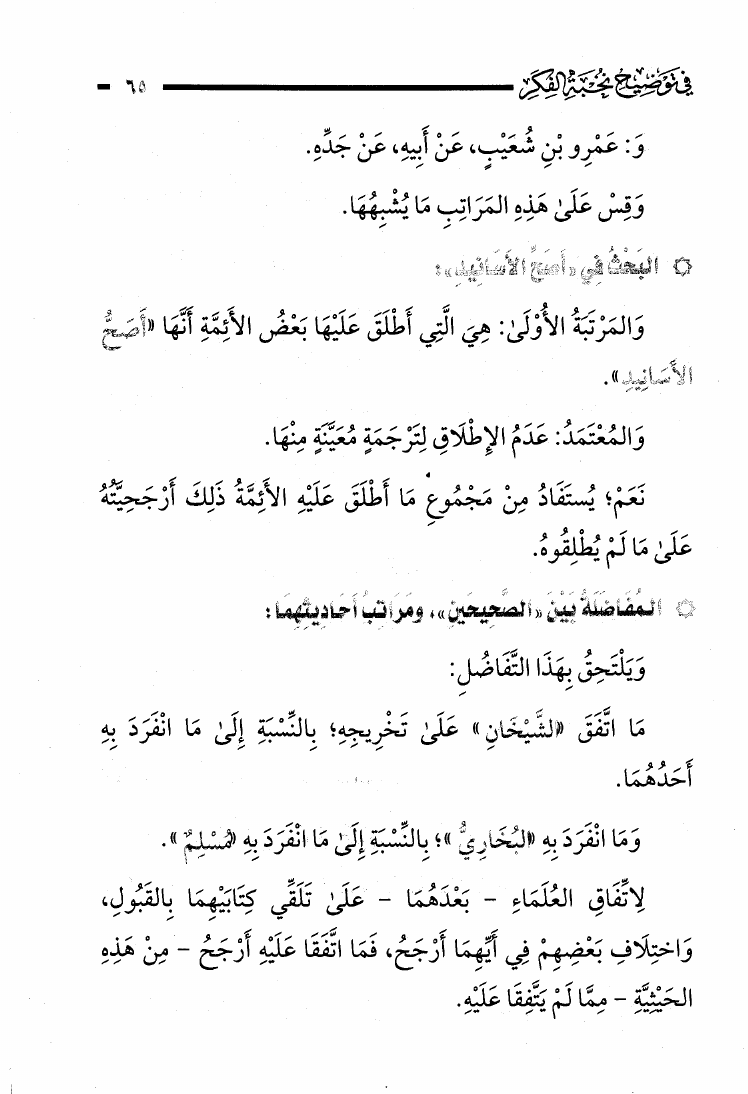 في توضيح نخبة الفكر ٦٥
وَ: عَمْرِو بْنِ شُعَيْبٍ، عَنْ أَبِيهِ، عَنْ جَدِّهِ.
وَقِسْ عَلَىٰ هَذِهِ المَرَاتِبِ مَا يُشْبِهُهَا.
۞ البَحْثُ فِي «أَصَحِّ الأَسَانِيدِ»:
وَالمَرْتَبَةُ الأُوْلَىٰ: هِيَ الَّتِي أَطْلَقَ عَلَيْهَا بَعْضُ الأَئِمَّةِ أَنَّهَا «أَصَحُّ
الأَسَانِيدِ».
وَالمُعْتَمَدُ: عَدَمُ الإِطْلَاقِ لِتَرْجَمَةٍ مُعَيَّنَةٍ مِنْهَا.
نَعَمْ؛ يُسْتَفَادُ مِنْ مَجْمُوعِ مَا أَطْلَقَ عَلَيْهِ الأَئِمَّةُ ذَلِكَ أَرْجَحِيَّتُهُ
عَلَىٰ مَا لَمْ يُطْلِقُوهُ.
۞ المُفَاضَلَةُ بَيْنَ «الصَّحِيحَينِ»، وَمَرَاتِبُ أَحَادِيثِهِمَا:
وَيَلْتَحِقُ بِهَذَا التَّفَاضُلِ:
مَا اتَّفَقَ «الشَّيْخَانِ» عَلَىٰ تَخْرِيجِهِ؛ بِالنِّسْبَةِ إِلَىٰ مَا انْفَرَدَ بِهِ
أَحَدُهُمَا.
وَمَا انْفَرَدَ بِهِ «البُخَارِيُّ»؛ بِالنِّسْبَةِ إِلَىٰ مَا انْفَرَدَ بِهِ «مُسْلِمٌ».
لِاتِّفَاقِ العُلَمَاءِ - بَعْدَهُمَا - عَلَىٰ تَلَقِّي كِتَابَيْهِمَا بِالقَبُولِ،
وَاخْتِلَافِ بَعْضِهِمْ فِي أَيِّهِمَا أَرْجَحُ، فَمَا اتَّفَقَا عَلَيْهِ أَرْجَحُ - مِنْ هَذِهِ
الحَيْثِيَّةِ - مِمَّا لَمْ يَتَّفِقَا عَلَيْهِ.